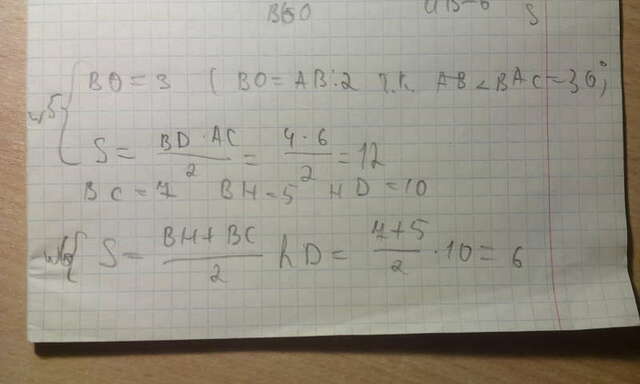 BO
S
№5 BO = 3 ( BO = AB : 2 т.к. ∠BAC = 30°;
S = BD · AC / 2 = 4 · 6 / 2 = 12
BC = 7 BH = 5 HD = 10
№6 S = BH + BC / 2 hD = 7 + 5 / 2 · 10 = 6